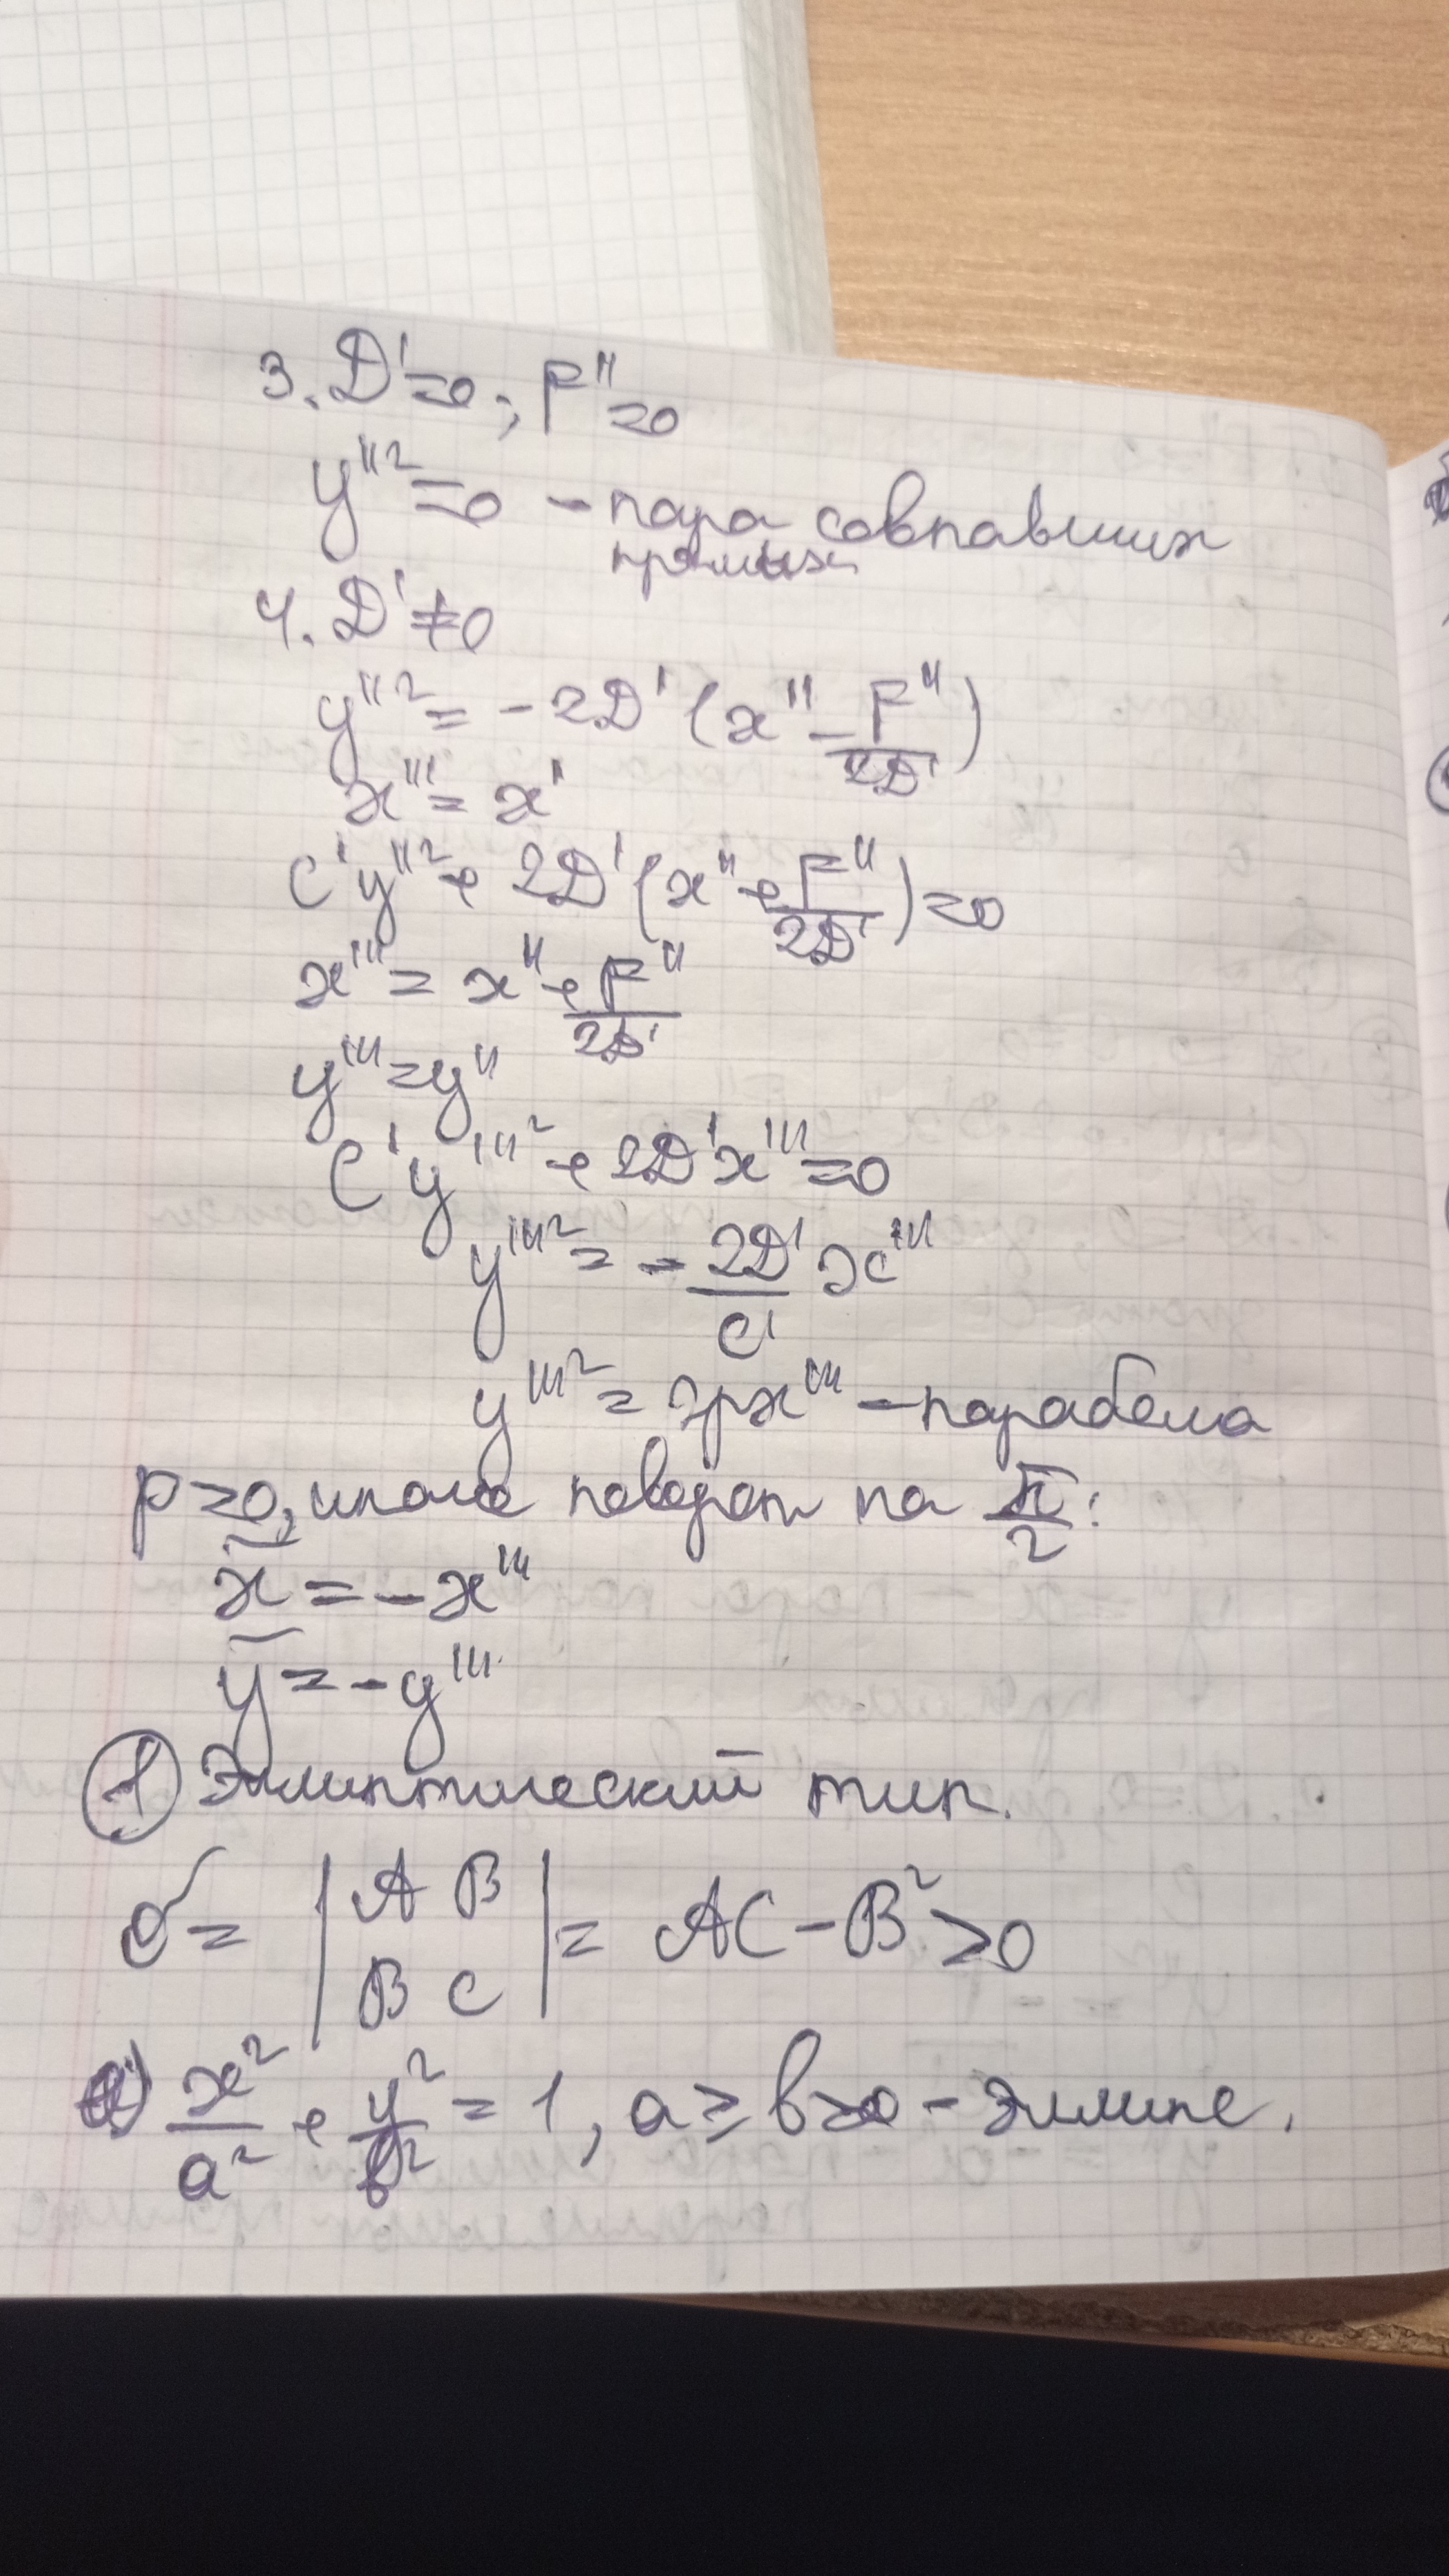 3. D'=0; F''=0
y''²=0 - пара совпавших
прямых
4. D'≠0
y''² = -2D'(x'' - F''/2D')
x''' = x'
C'y''² + 2D'(x'' + F''/2D') = 0
x''' = x'' + F''/2D'
y''' = y''
C'y'''² + 2D'x''' = 0
y'''² = - 2D'/C' x'''
y'''² = 2px''' - парабола
p>0, иначе поворот на π/2:
x̃ = -x'''
ỹ = -y'''
① Эллиптический тип.
δ = |A B; B C| = AC - B² > 0
a) x²/a² + y²/b² = 1, a ≥ b>0 - эллипс.